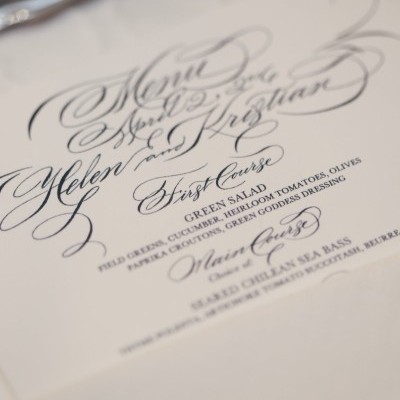 Menu
April 2, 2016
Helen and Kristian
First Course
GREEN SALAD
FIELD GREENS, CUCUMBER, HEIRLOOM TOMATOES, OLIVES
PAPRIKA CROUTONS, GREEN GODDESS DRESSING
Main Course
Choice of:
SEARED CHILEAN SEA BASS
POLENTA, ARTICHOKE TOMATO SUCCOTASH, BEURRE